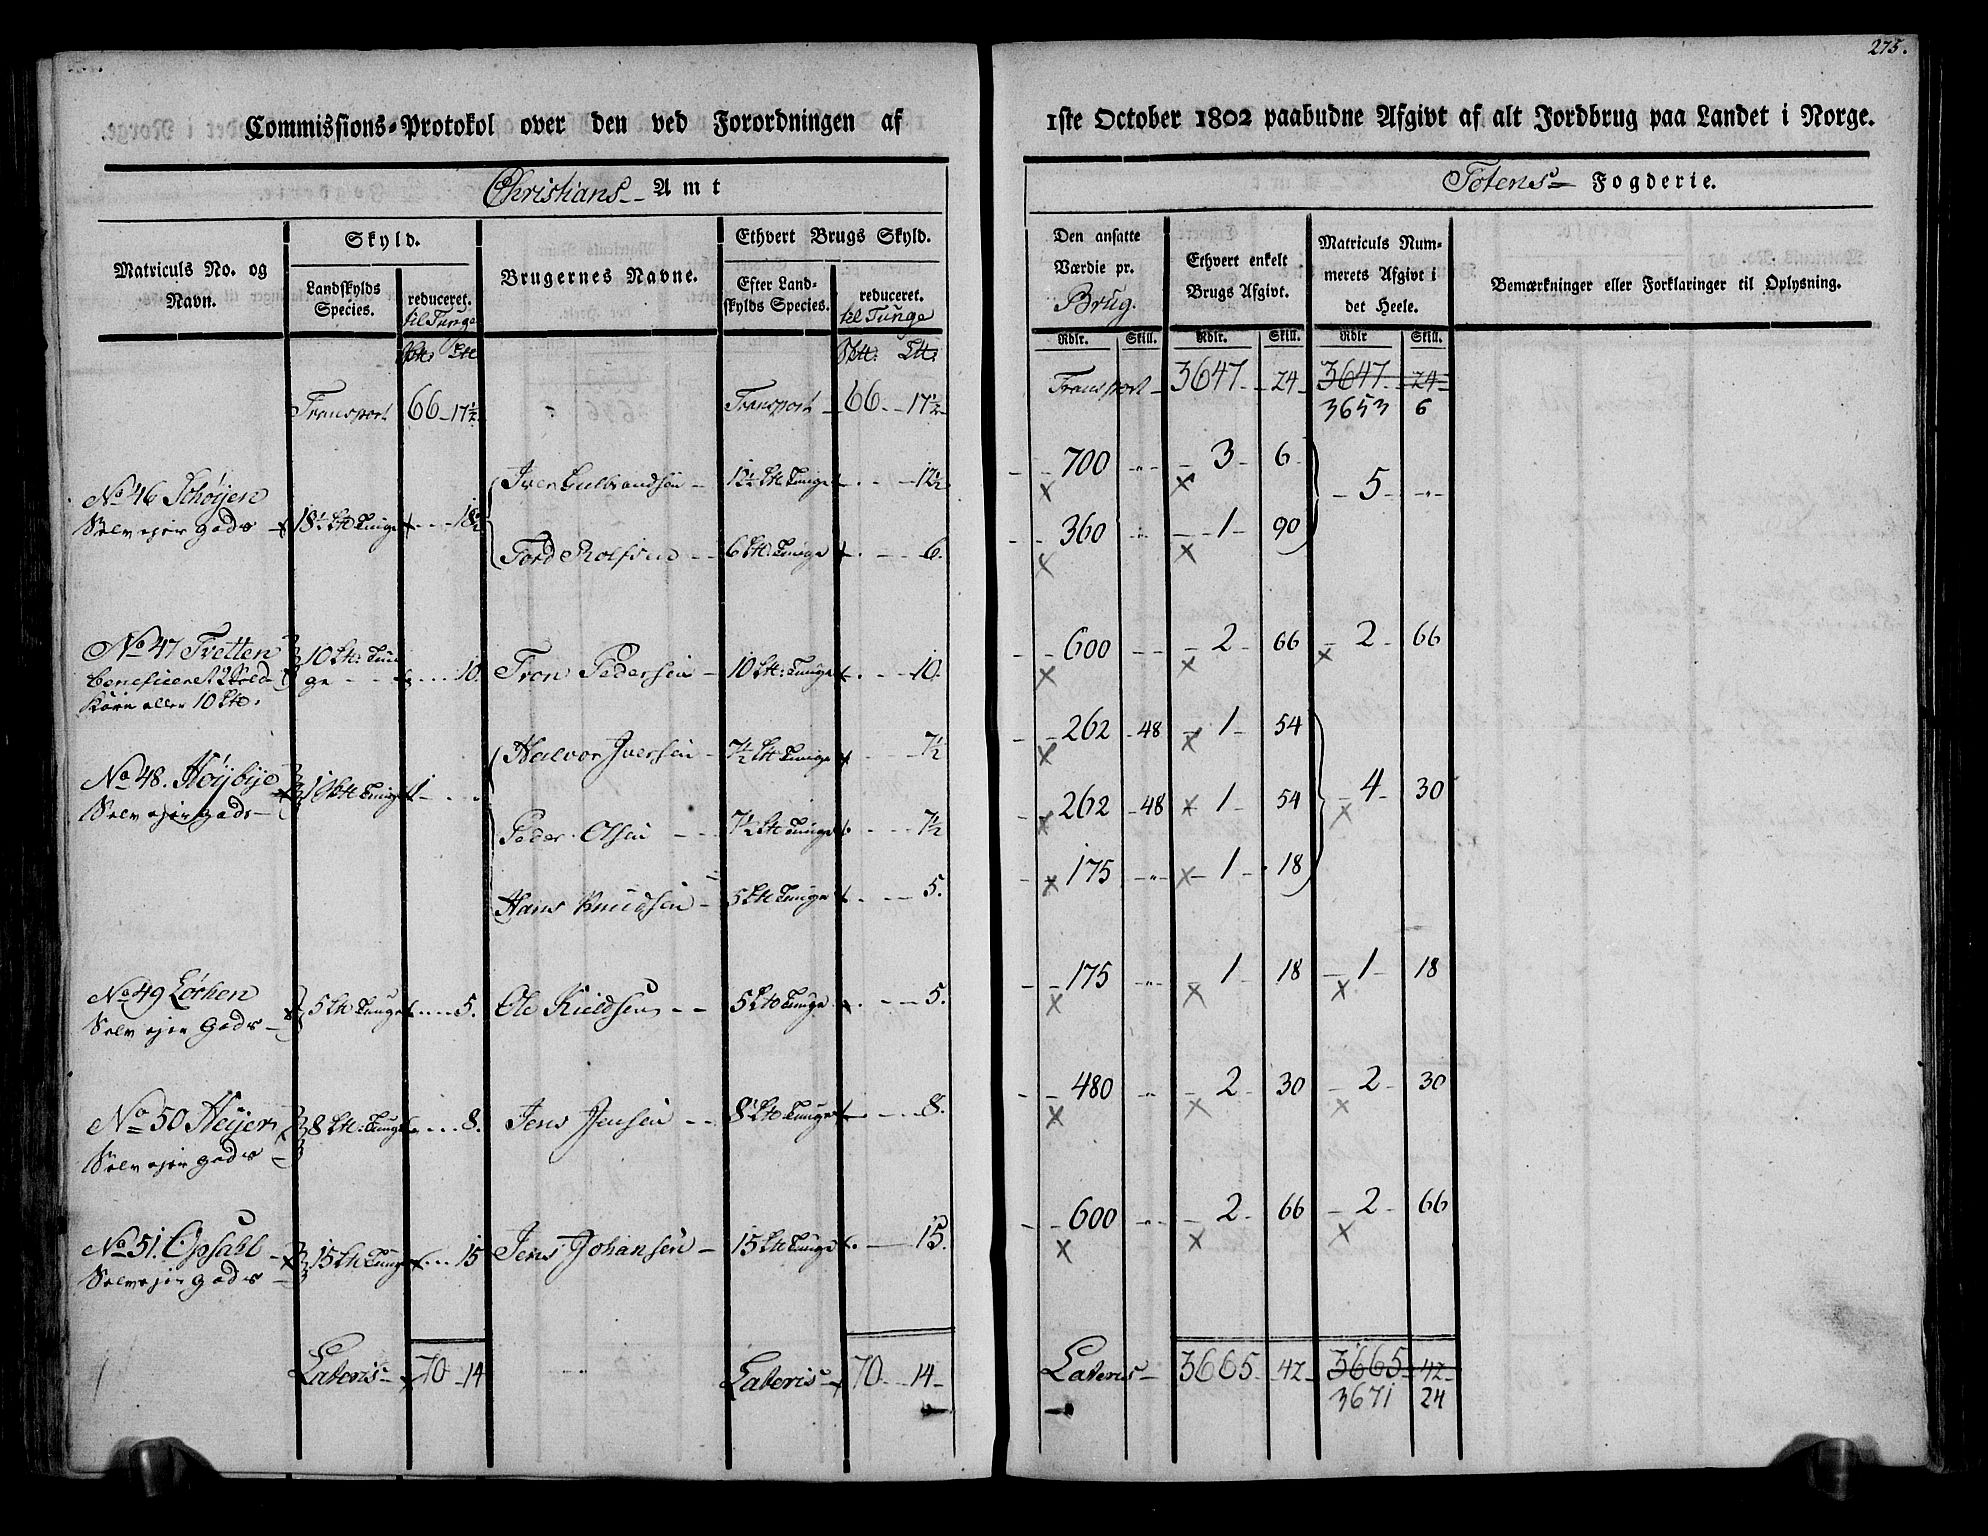 275.
Commissions-Protokol over den ved Forordningen af 1ste October 1802 paabudne Afgivt af alt Jordbrug paa Landet i Norge.
Christians Amt
Totens Fogderie.
Matriculs No. og Navn.
Skyld.
Landskylds Species.
reduceret. til Tunge
Brugernes Navne.
Ethvert Brugs Skyld.
Efter Landskylds Species.
reduceret. til Tunge
Den ansatte Værdie pr. Brug.
Ethvert enkelt Brugs Afgivt.
Matriculs Nummerets Afgivt i det Heele.
Bemærkninger eller Forklaringer til Oplysning.
Rdlr. Skill. Rdlr. Skill. Rdlr Skill.
Transport 66 17½ Transport 66 17½ Transport 3647 24 3647 24
3653 6
No 46 Schøijen 18½ Lt Tunge 18½ Iver Gulbrandsen 12½ Lt Tunge 12½ 700 3 6 5
Selv ejer gods
Tord Rolfsen 6 Lt. Tunge 6. 360 1 90
No 47 Tretten 10 Lt: Tunge 10. Tron Pedersen 10 Lt: Tunge 10. 600 2 66 2 66
beneficeret
Korn eller 10 Lt.
No 48. Høijbye Halvor Iversen 7½ Lt Tunge 7½ 262 48 1 54
Selv ejer gods 1
Peder Olsen 7½ Lt Tunge 7½ 262 48 1 54 4 30
Hans Knudsen 5 Lt Tunge 5. 175 1 18
No 49 Lørken 5 Lt Tunge 5. Ole Kieldsen 5 Lt Tunge 5. 175 1 18 1 18
Selv ejer Gods
No 50 Heijer 8 Lt: Tunge 8. Jens Jensen 8 Lt Tunge 8. 480 2 30 2 30
Selv ejer gods
No 51. Opsahl 15 Lt Tunge 15 Jens Johansen 15 Lt Tunge 15. 600 2 66 2 66
Selv ejer gods
Lateris 70 14 Lateris 70 14 Lateris 3665 42 3665 42
3671 24